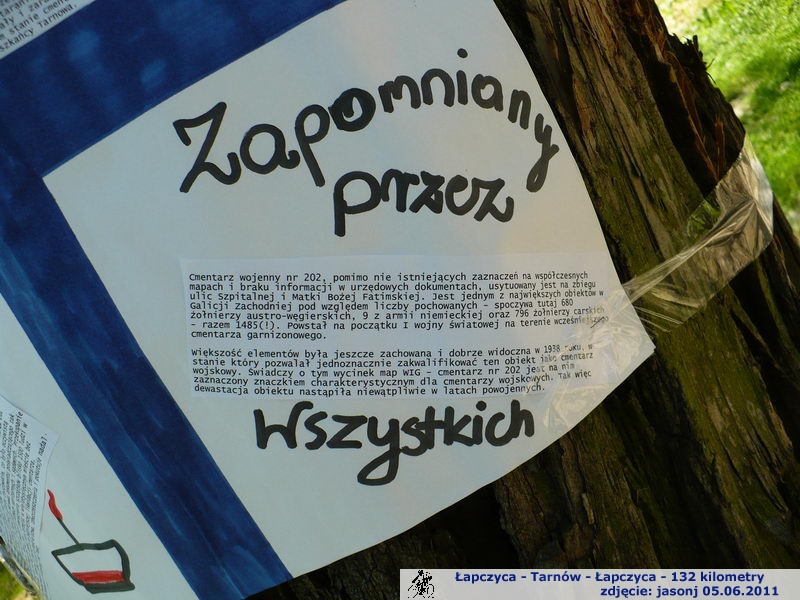 stanie cmen
szkańcy Tarnowa.
Zapomniany
przez
Cmentarz wojenny nr 202, pomimo nie istniejących zaznaczeń na współczesnych
mapach i braku informacji w urzędowych dokumentach, usytuowany jest na zbiegu
ulic Szpitalnej i Matki Bożej Fatimskiej. Jest jednym z największych obiektów w
Galicji Zachodniej pod względem liczby pochowanych - spoczywa tutaj 680
żołnierzy austro-węgierskich, 9 z armii niemieckiej oraz 796 żołnierzy carskich
- razem 1485(!). Powstał na początku I wojny światowej na terenie wcześniejszego
cmentarza garnizonowego.
Większość elementów była jeszcze zachowana i dobrze widoczna w 1938 roku, w
stanie który pozwalał jednoznacznie zakwalifikować ten obiekt jako cmentarz
wojskowy. Świadczy o tym wycinek map WIG - cmentarz nr 202 jest na nim
zaznaczony znaczkiem charakterystycznym dla cmentarzy wojskowych. Tak więc
dewastacja obiektu nastąpiła niewątpliwie w latach powojennych.
Wszystkich
Łapczyca - Tarnów - Łapczyca - 132 kilometry
zdjęcie: jasonj 05.06.2011